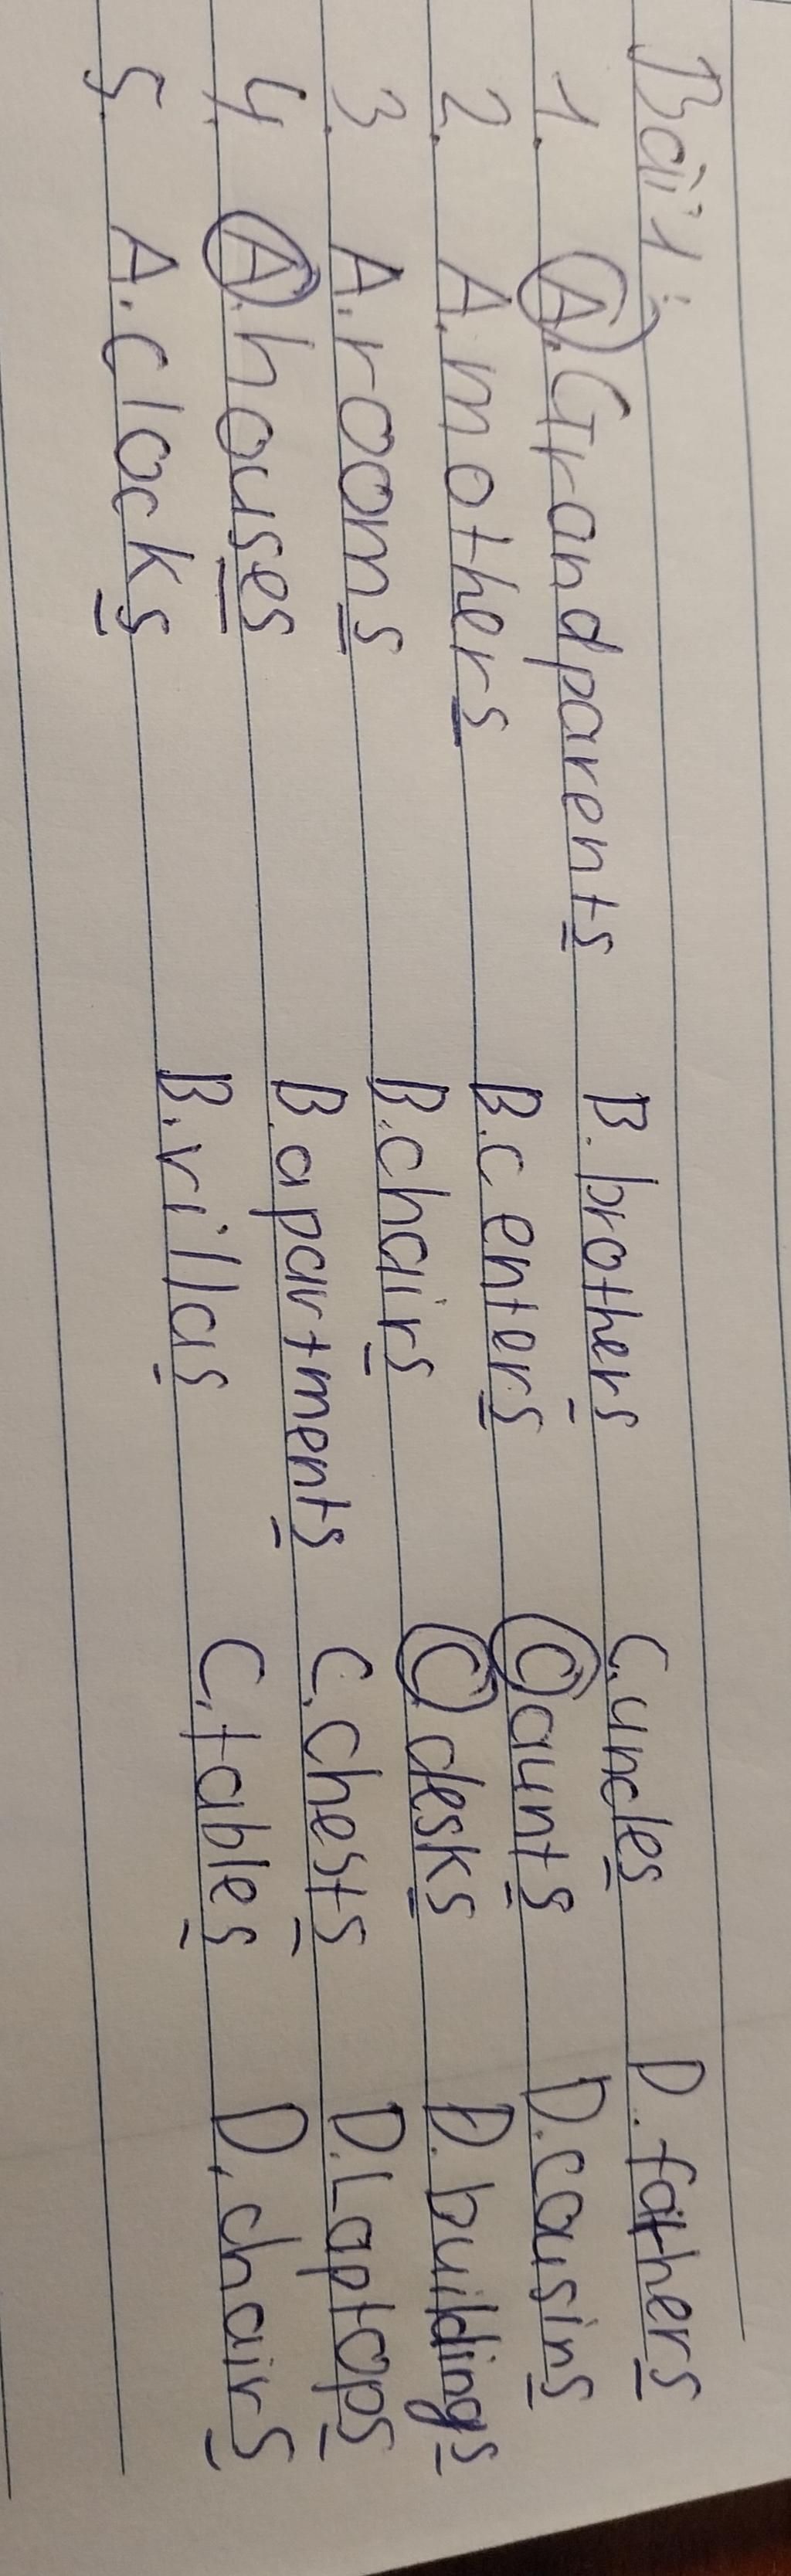 Bài 1:
1. A. Grandparents B. brothers C. uncles D. fathers
2. A. mothers B. centers C. aunts D. cousins
3. A. rooms B. chairs C. desks D. buildings
4. A. houses B. apartments C. chests D. Laptops
5. A. clocks B. villas C. tables D. chairs